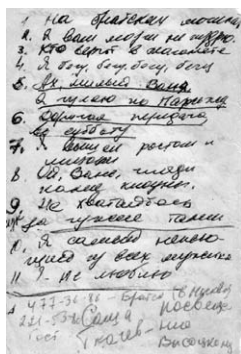 1 На братских могилах
2. Я вам мозги не пудрю.
3. Кто верит в Магомета
4. Я бегу, бегу, бегу, бегу
5. Ах, милый Ваня
Я гуляю по Парижу
6. Дорогая передача
Во субботу
7. Я вышел ростом и
лицом
8. Ой, Вань, гляди
какие клоуны.
9. Не хватайтесь
за чужие талии
10. Я самый непью-
щий из всех мужиков
11. Я не люблю
477-36-86 - Братья
Саша